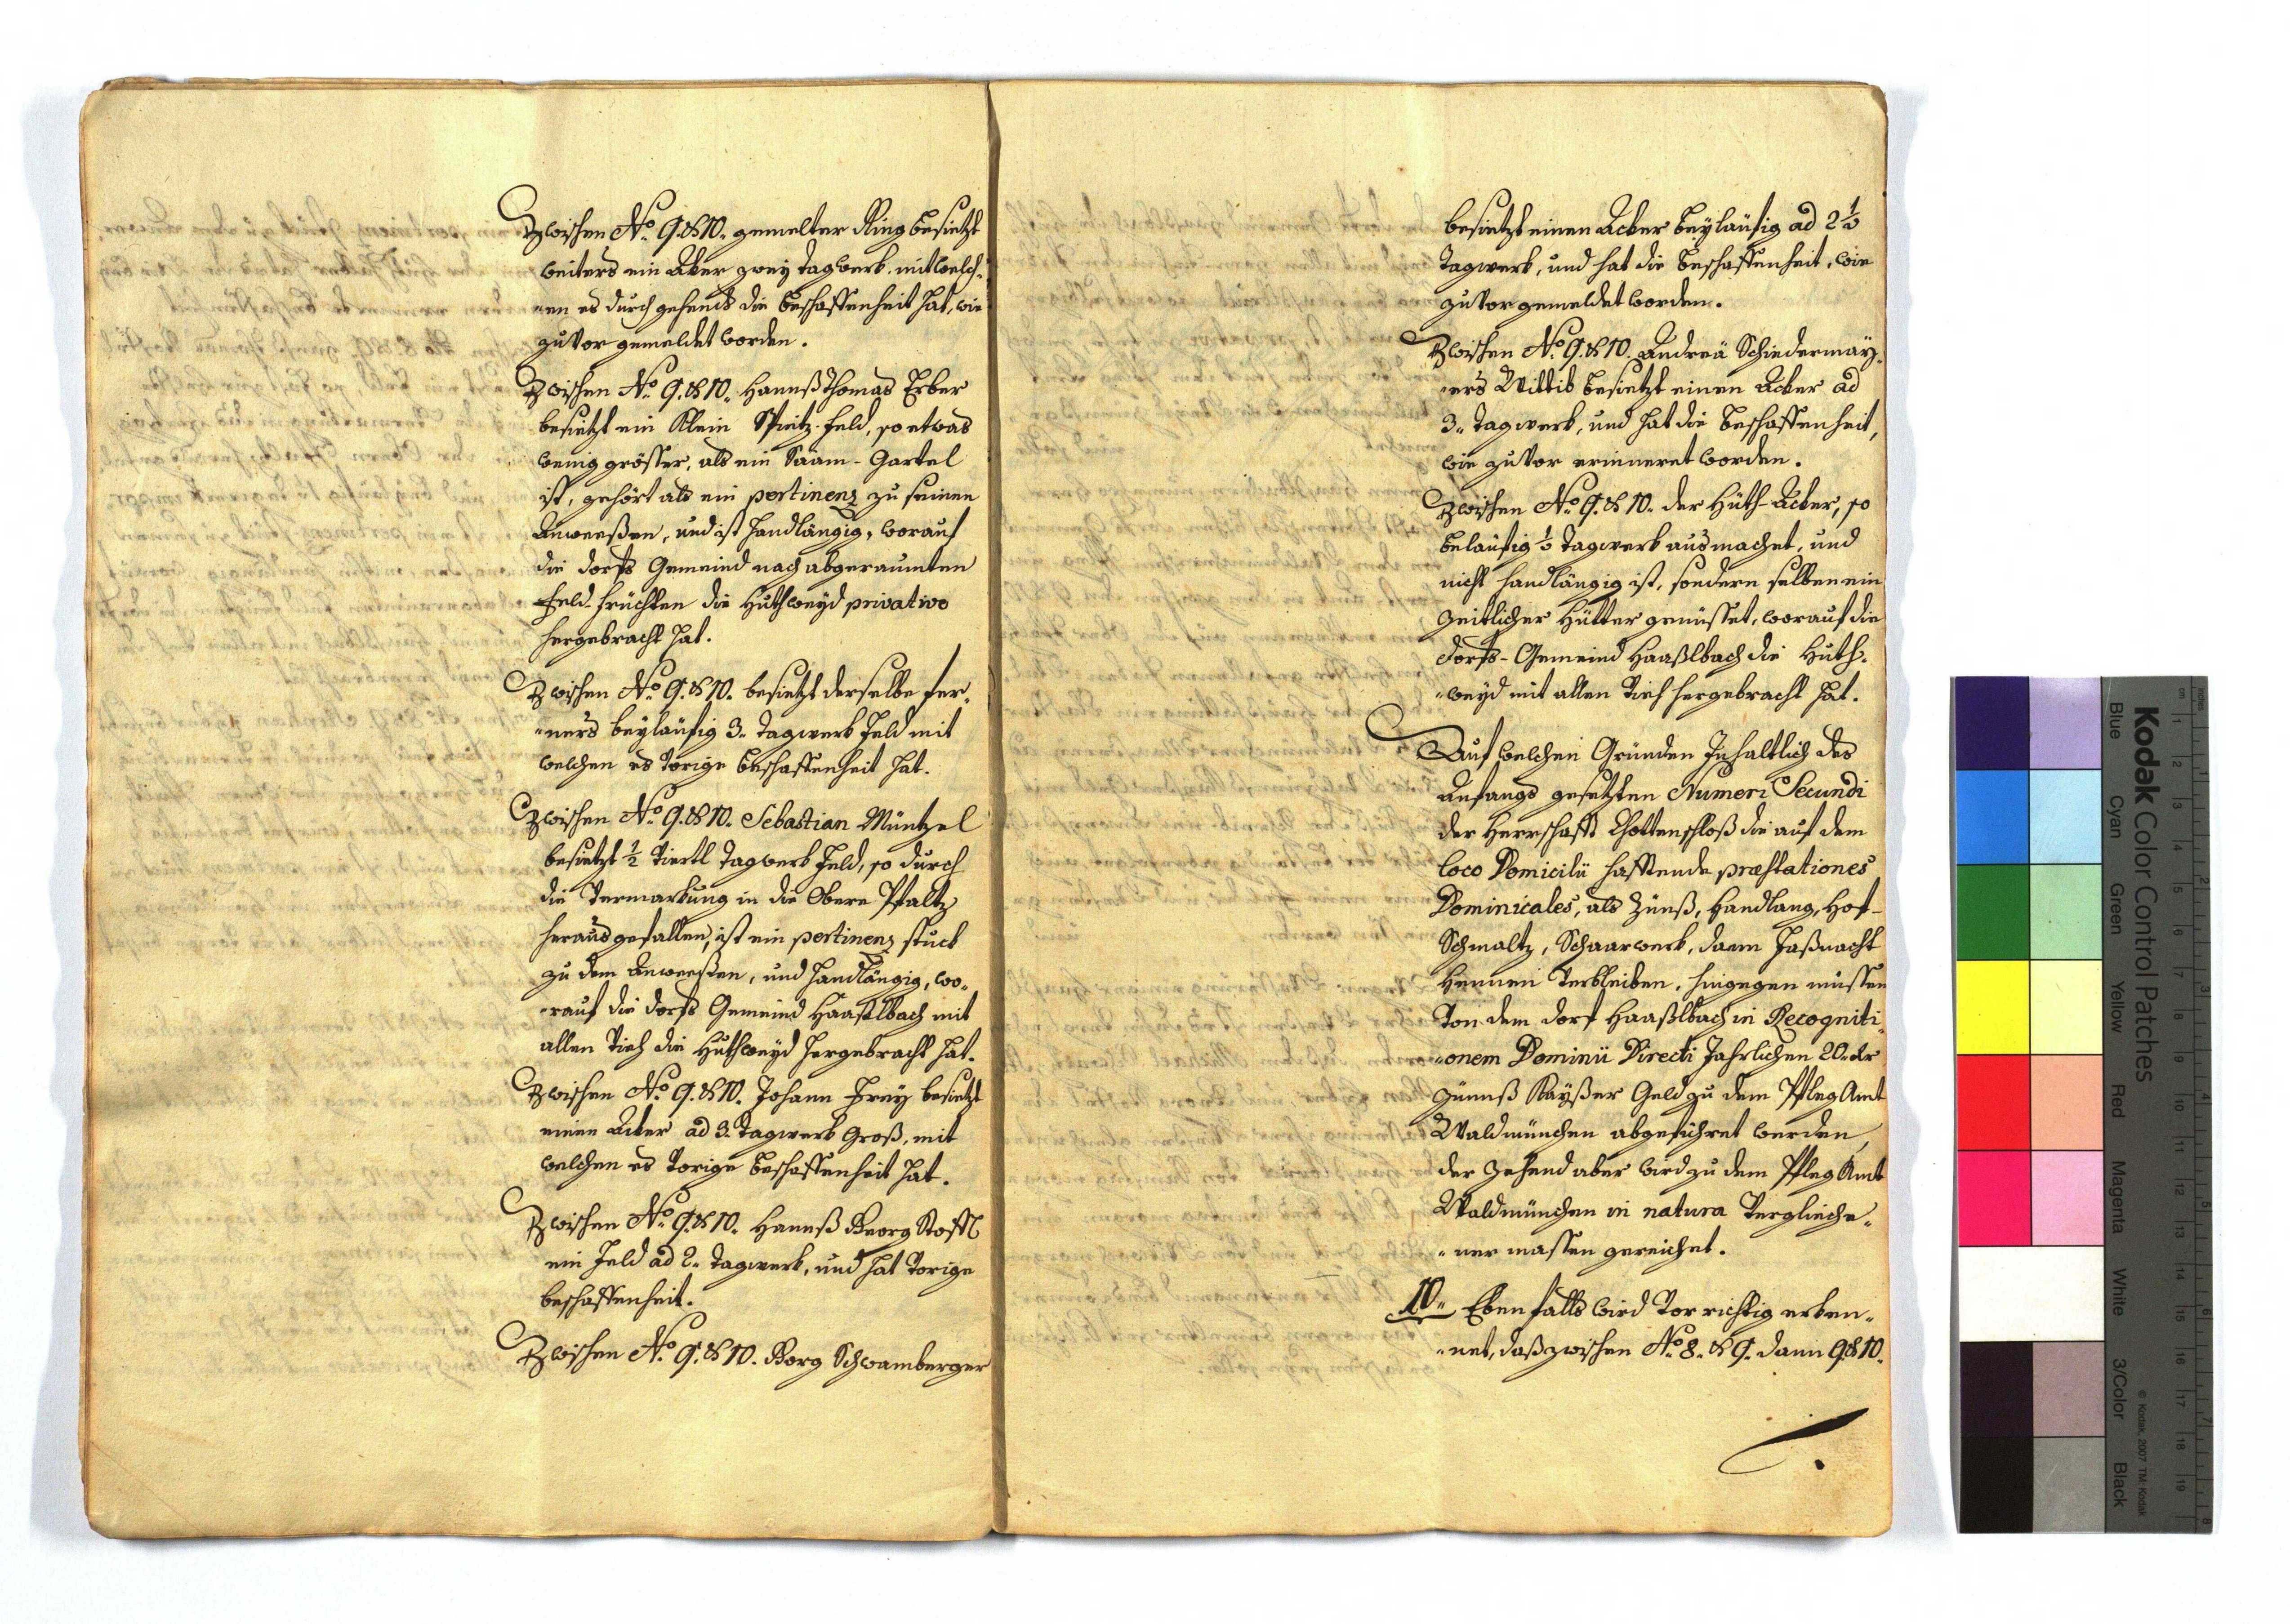 Zwischen No. 9. & 10. gemelter Ring besietzt
weiters ein Aker zwey Tagwerk, mit welch-
-en es durchgehends die beschaffenheit hat, wie
zuvor gemeldet worden.
Zwischen No. 9. & 10. Hannß Thomas Erber
besietzt ein klein Spietz-feld, so etwas
wenig grösser, als ein Saam-Gartel
ist, gehört als ein pertinenz zu seinen
Anweeßen, und ist handlängig, worauf
die dorfs Gemeind nach abgeraumten
feld-früchten die Huthweyd privative
hergebracht hat.
Zwischen No. 9. & 10. besietzt derselbe fer-
-ners beyläufig 3. Tagwerk Feld mit
welchen es vorige beschaffenheit hat.
Zwischen No. 9. & 10. Sebastian Müntzel
besietzt 1/2 viertl Tagwerk Feld, so durch
die vermarkung in die Obere Pfaltz
heraus gefallen, ist ein pertinenz stuck
zu dem Anweeßen, und handlängig, wo-
-rauf die dorfs Gemeind Haaßlbach mit
allen vieh die Huthweyd hergebracht hat.
Zwischen No. 9. & 10. Johann Frey besietzt
einen Acker ad 3. Tagwerk Groß, mit
welchen es vorige beschaffenheit hat.
Zwischen No. 9. & 10. Hannß Georg Stoffl
ein Feld ad 2. Tagwerk, und hat vorige
beschaffenheit.
Zwischen No. 9. & 10. Görg Schwamberger
besietzt einen Acker beyläufig ad 2 1/2
Tagwerk, und hat die beschaffenheit, wie
zuvor gemeldet worden.
Zwischen No. 9. & 10. Andreä Schiedermay-
-ers Wittib besietzt einen Acker ad
3. Tagwerk, und hat die beschaffenheit,
wie zuvor erinneret worden.
Zwischen No. 9. & 10. der Hüth-Acker, so
beläufig 1/2 Tagwerk ausmachet, und
nicht handlängig ist, sondern selben ein
zeitlicher Hütter genüsset, worauf die
dorfs-Gemeind Haaßlbach die Huth-
-weyd mit allen vieh hergebracht hat.
Auf welchen Gründen Inhaltlich des
Anfangs gesetzten Numeri Secundi
der Herrschafft Chottenschloß die auf dem
loco Domicilii hafftende præstationes
Dominicales, als Zünß, Handlang, Hof-
Schmaltz, Schaarwerk, dann Faßnacht
Hennen verbleiben, hingegen müssen
von dem dorf Haaßlbach in Recogniti-
-onem Dominii Directi Jahrlichen 20. dr
Zünnß Kayßer Geld zu dem Pfleg Amt
Waldmünchen abgeführet werden,
der Zehend aber wird zu dem Pfleg Amt
Waldmünchen in natura verglieche-
-ner massen gereichet.
10. Ebenfalls wird vor richtig erken-
-net, daß zwischen No. 8. & 9. dann 9 & 10.
Kodak Color Control Patches
Blue Cyan Green Yellow Red Magenta White 3/Color Black
© Kodak, 2007 TM: Kodak